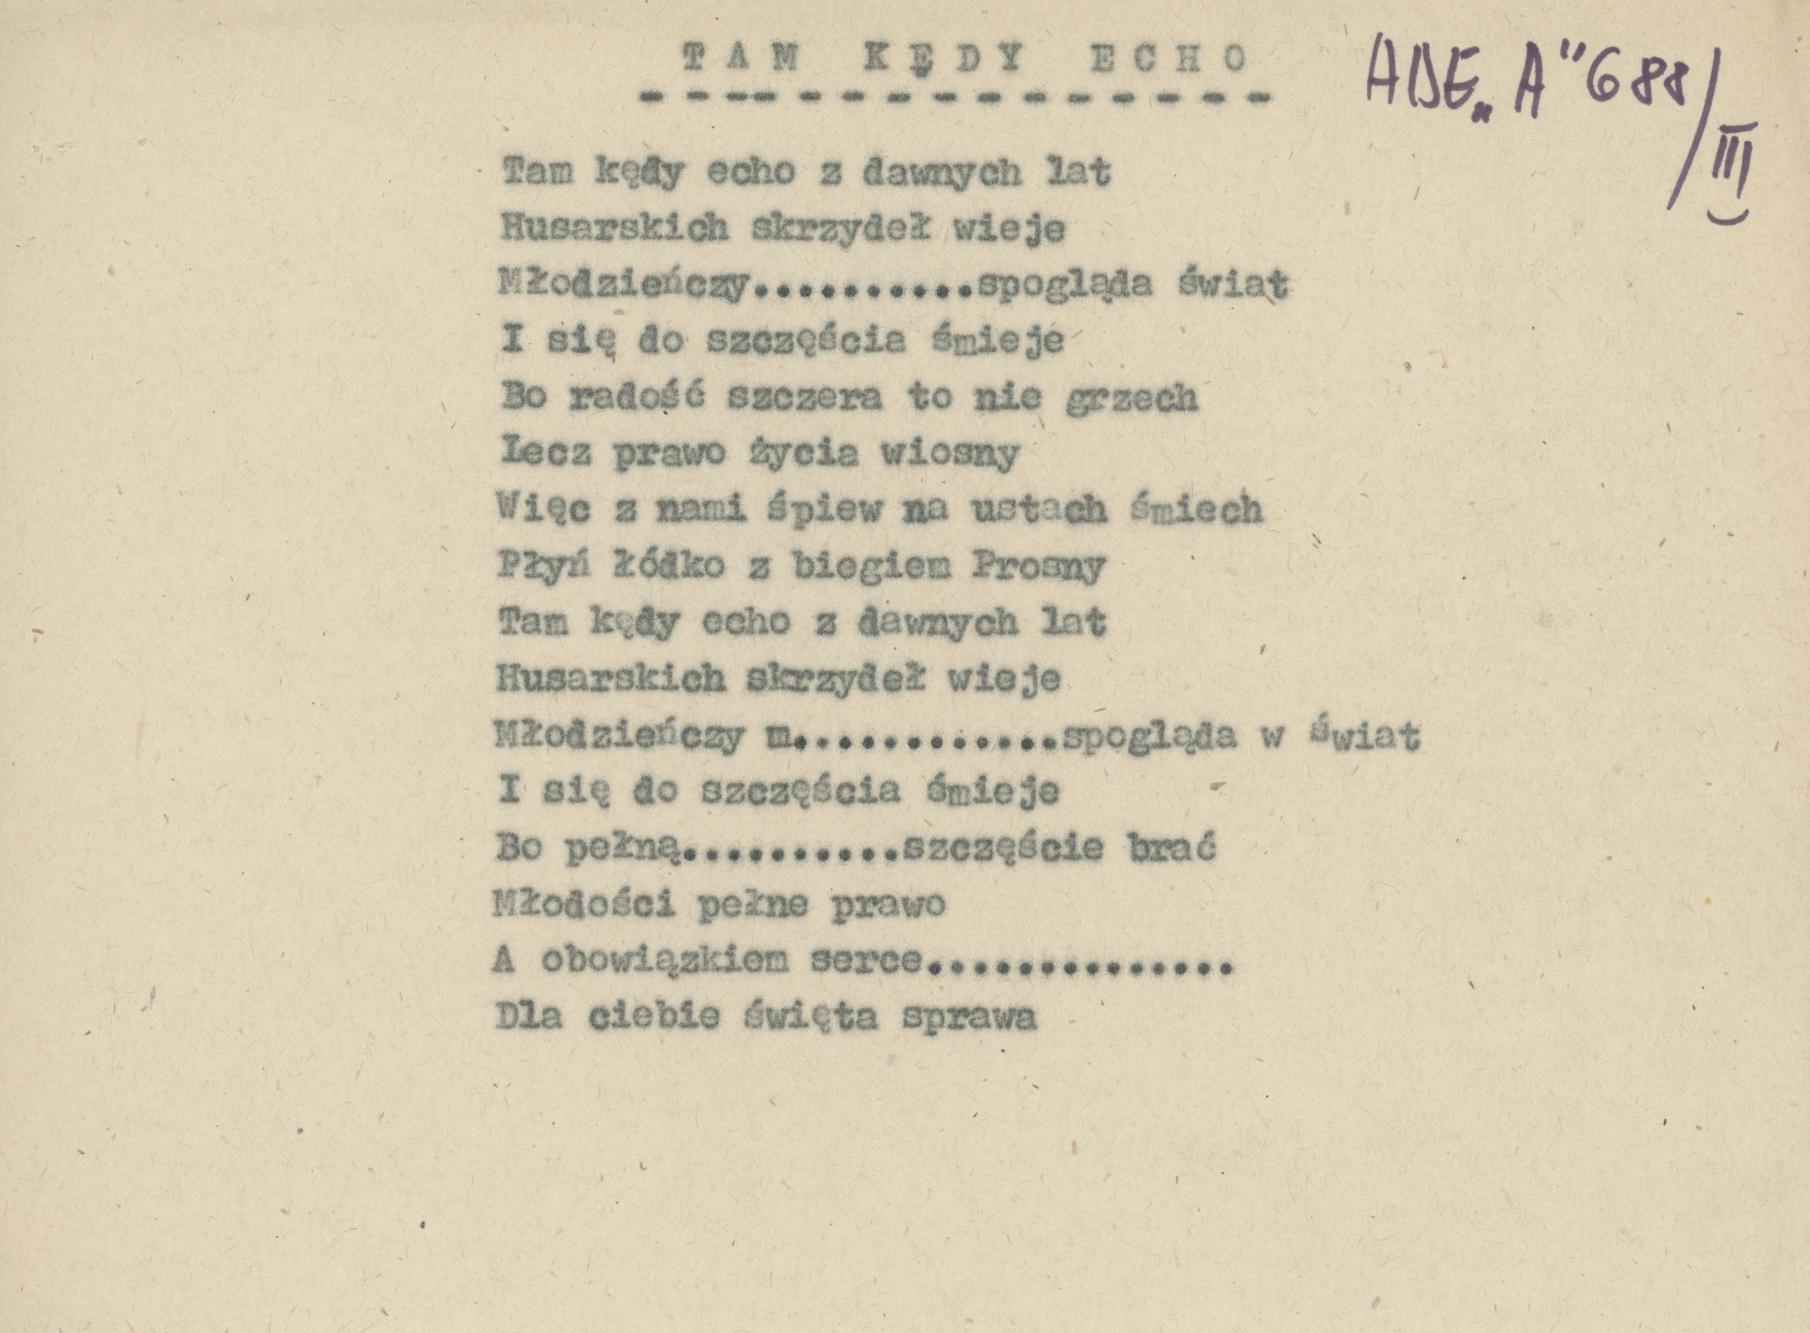 TAM KĘDY ECHO
ADE „A" 688/III
Tam kędy echo z dawnych lat
Husarskich skrzydeł wieje
Młodzieńczy..........spogląda świat
I się do szczęścia śmieje
Bo radość szczera to nie grzech
Lecz prawo życia wiosny
Więc z nami śpiew na ustach śmiech
Płyń łódko z biegiem Prosny
Tam kędy echo z dawnych lat
Husarskich skrzydeł wieje
Młodzieńczy m............spogląda w świat
I się do szczęścia śmieje
Bo pełną..........szczęście brać
Młodości pełne prawo
A obowiązkiem serce..............
Dla ciebie święta sprawa